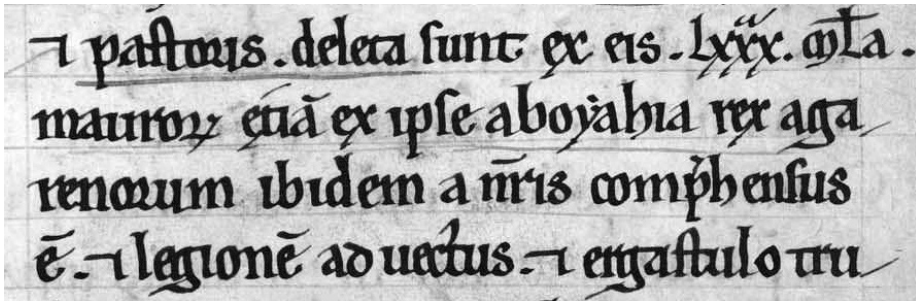 ⁊ pastoris. deleta sunt ex eis. lxxxᵃ. ml̅a.
mauroꝝ etiā ex ipse aboẏahia rex aga
renorum ibidem a nr̅is comp̓hensus
ē. ⁊ legionē aduect̓us. ⁊ ergastulo tru